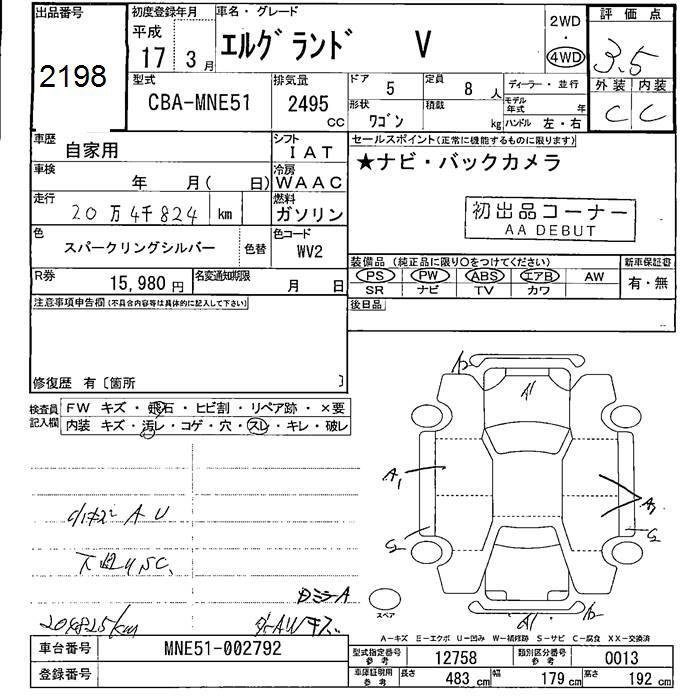 出品番号 初度登録年月 車名・グレード 評価点
2198 平成 17年 3月 エルグランド V 2WD 4WD 3.5
型式 排気量 ドア 定員 ディーラー・並行 外装 内装
CBA-MNE51 2495 CC 5 8人 C C
形状 積載 モデル年式 年
ワゴン kg ハンドル 左・右
車歴 自家用 シフト IAT セールスポイント(正常に機能するものに限ります)
★ナビ・バックカメラ
車検 年 月( 日) 冷房 WAAC
走行 20万4千824 km 燃料 ガソリン
初出品コーナー
AA DEBUT
色 スパークリングシルバー 色替 色コード WV2
装備品(純正品に限り○をつけてください) 新車保証書
PS PW ABS エアB AW 有・無
SR ナビ TV カワ
R券 15,980円 名変通知期限 月 日
後日品
注意事項申告欄(不具合内容等は具体的に記入して下さい)
修復歴 有〔箇所 〕
検査員記入欄 FW キズ・飛石・ヒビ割・リペア跡・×要
内装 キズ・汚レ・コゲ・穴・スレ・キレ・破レ
A1
A1
S
S
A U
204825km
A1
スペア
A-キズ E-エクボ U-凹み W-補修跡 S-サビ C-腐食 XX-交換済
車台番号 MNE51-002792
登録番号
型式指定番号 参考 12758 類別区分番号 参考 0013
車庫証明用 参考 長さ 483cm 幅 179cm 高さ 192cm